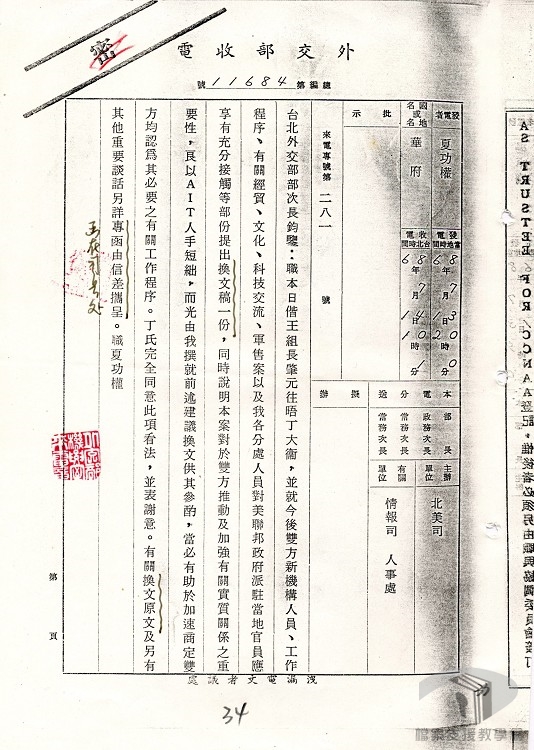 密
外交部收電
總編第11684號
發電者 夏功權
國名或地名 華府
批示
發電 當地時間 68年7月3日12時00分
收電 台北時間 68年7月4日10時10分
來電專號第二八一號
本電分送
部長
政務次長
常務次長
常務次長
主辦單位 北美司
有關單位 情報司 人事處
擬辦
台北外交部部次長鈞鑒：職本日偕王組長肇元往晤丁大衛，並就今後雙方新機構人員、工作
程序、有關經貿、文化、科技交流、軍售案以及我各分處人員對美聯邦政府派駐當地官員應
享有充分接觸等部份提出換文稿一份，同時說明本案對於雙方推動及加強有關實質關係之重
要性，良以AIT人手短絀，而先由我撰就前述建議換文供其參酌，當必有助於加速商定雙
方均認為其必要之有關工作程序。丁氏完全同意此項看法，並表謝意。有關換文原文及另有
其他重要談話另詳專函由信差攜呈。職夏功權
第 頁
洩漏電文者議處
34
AS TRUSTEE FOR CCNAA登記，惟後者必須另由
檔案支援教學